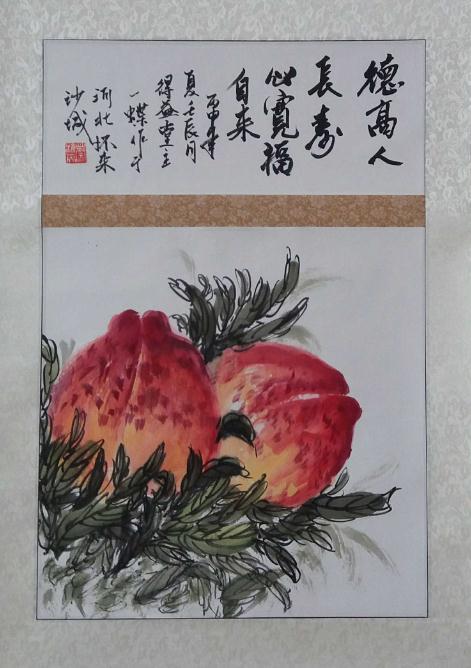 德高人
長寿
心寬福
自来
丙申年
夏壬辰月
得益堂主
一蝶作于
河北怀来
沙城